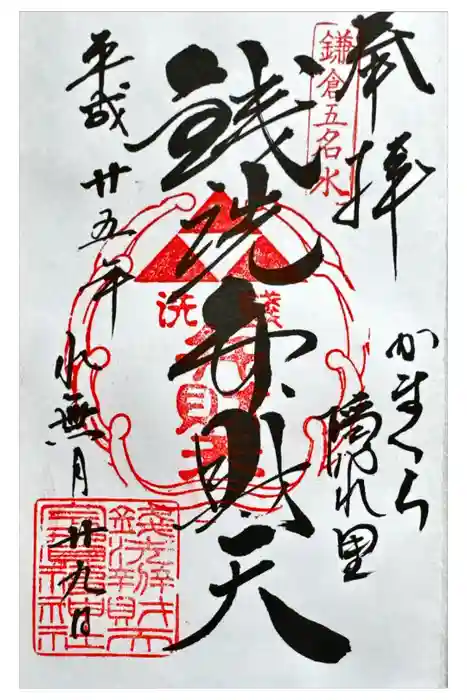 奉拝
鎌倉五名水
かまくら
隠れ里
銭洗弁財天
銭洗
弁財天
平成廿五年
水無月
廿九日
銭洗弁財天
宇賀福神社